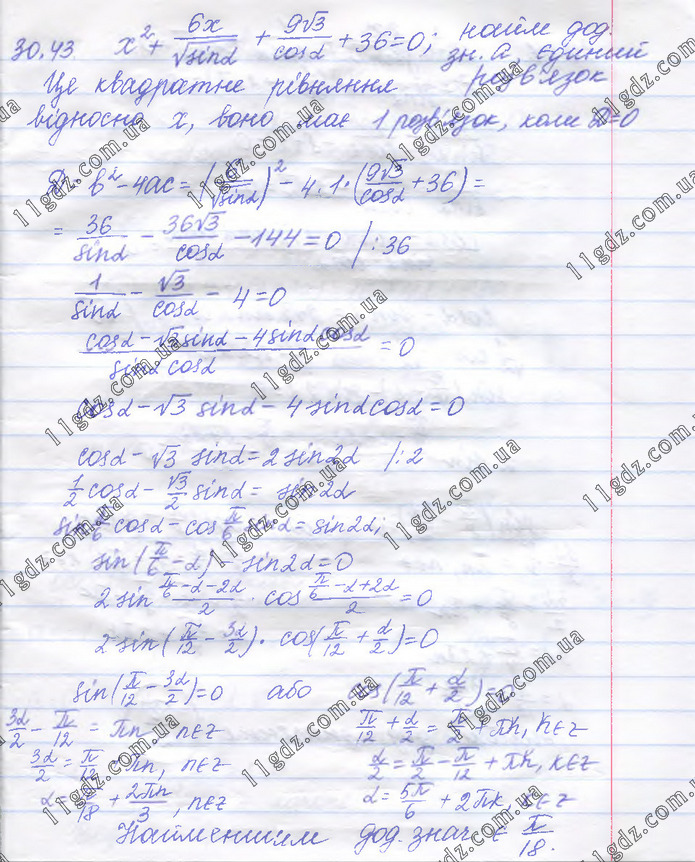 30.43. x² + 6x/√sinα + 9√3/cosα + 36 = 0; найм дод.
зн. α, єдиний
розв'язок
Це квадратне рівняння
відносно x, воно має 1 розв'язок, коли D=0
D = b² - 4ac = (6/√sinα)² - 4·1·(9√3/cosα + 36) =
= 36/sinα - 36√3/cosα - 144 = 0 /:36
1/sinα - √3/cosα - 4 = 0
(cosα - √3 sinα - 4 sinα cosα)/(sinα cosα) = 0
cosα - √3 sinα - 4 sinα cosα = 0
cosα - √3 sinα = 2 sin2α /:2
1/2 cosα - √3/2 sinα = sin2α
sin π/6 cosα - cos π/6 sinα = sin2α;
sin(π/6 - α) - sin2α = 0
2 sin (π/6 - α - 2α)/2 · cos (π/6 - α + 2α)/2 = 0
2 sin(π/12 - 3α/2) · cos(π/12 + α/2) = 0
sin(π/12 - 3α/2) = 0 або cos(π/12 + α/2) = 0
3α/2 - π/12 = πn, n∈z π/12 + α/2 = π/2 + πk, k∈z
3α/2 = π/12 + πn, n∈z α/2 = π/2 - π/12 + πk, k∈z
α = π/18 + 2πn/3, n∈z α = 5π/6 + 2πk, k∈z
Найменшим дод. знач. є π/18.
11gdz.com.ua